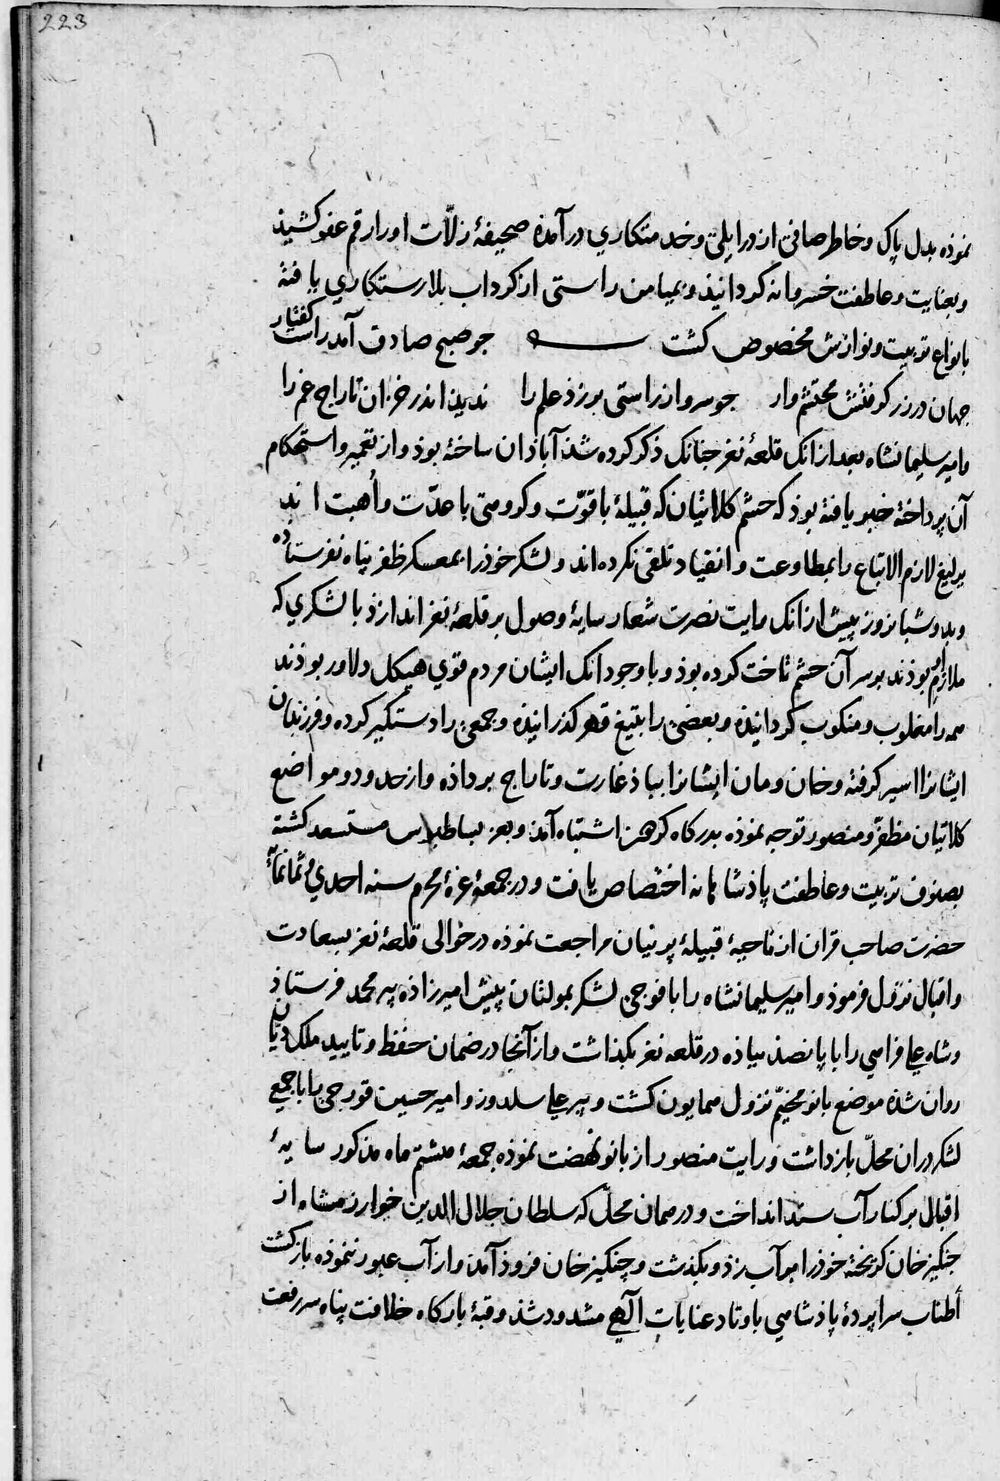 223
نموذه بدل پاک و خاطر صافی از در ایلی و خدمتکاری درآمذه صحیفهٔ زلّات او را رقم عفو کشیذ
و بعنایت و عاطفت خسروانه کردانیذ و بمیامن راستی از کرداب بلا رستکاری یافته
بانواع تربیت و نوازش مخصوص کشت جو صبح صادق آمد راست کفتار
جهان در زر کرفتش محتشم وار جو سرو از راستی بر زذ علم را ندیذ اندر خزان تاراج غم را
و امیر سلیمانشاه بعد از انک قلعهٔ نغر جنانک ذکر کرده شذ آباذان ساخته بوذ و از تعمیر و استحکام
آن پرداخته خبر یافته بوذ که حشم کلاتیان که قبیلهٔ با قوّت و کروهی با عدّت و اُهبت اند
یرلیغ لازم الاتباع را بمطاوعت و انقیاد تلقی نکرده اند و لشکر خوذ را بمعسکر ظفر پناه نفرستاده
و بدو شبانروز پیش از انک رایت نصرت شعار سایهٔ وصول بر قلعهٔ نغر اندازذ با لشکری که
ملازم او بوذند بر سر آن حشم تاخت کرده بوذ و با وجود انک ایشان مردم قوی هیکل دلاور بوذند
همه را مغلوب و منکوب کردانیذه و بعضی را بتیغ قهر کذرانیذه و جمعی را دستکیر کرده و فرزندان
ایشانرا اسیر کرفته و خان و مان ایشانرا بباذ غارت و تاراج برداذه و از حدود و مواضع
کلاتیان مظفر و منصور توجه نموذه بدرکاه کردون اشتباه آمذ و بعز بساطبوس مستسعد کشته
بصنوف تربیت و عاطفت پاذشاهانه اختصاص یافت و در جمعهٔ غرهٔ محرم سنه احدی و ثمانمائة
حضرت صاحب قران از ناحیهٔ قبیلهٔ پرنیان مراجعت نموذه در حوالی قلعهٔ نغر بسعادت
و اقبال نزول فرموذ و امیر سلیمانشاه را با فوجی لشکر بمولتان پیش امیرزاذه پیر محمد فرستاذ
و شاه علی فراهی را با پانصذ پیاذه در قلعه نغر بکذاشت و از آنجا در ضمان حفظ و تایید ملک دیّان
روان شذه موضع بانو مخیّم نزول همایون کشت و پیر علی سلدوز و امیر حسین قورجی را با جمعی
لشکر در ان محلّ بازداشت و رایت منصور از بانو نهضت نموذه جمعهٔ هشتم ماه مذکور سایهٔ
اقبال بر کنار آب سند انداخت و در همان محل که سلطان جلال الدین خوارزمشاه از
جنکیز خان کریخته خوذ را بر آب زذ و بکذشت و چنکیز خان فروذ آمذ و از آب عبور ننموذه بازکشت
أطناب سراپردهٔ پاذشاهی باوتاد عنایات آلهی مشدود شذ و قبهٔ بارکاه خلافت پناه سر رفعت